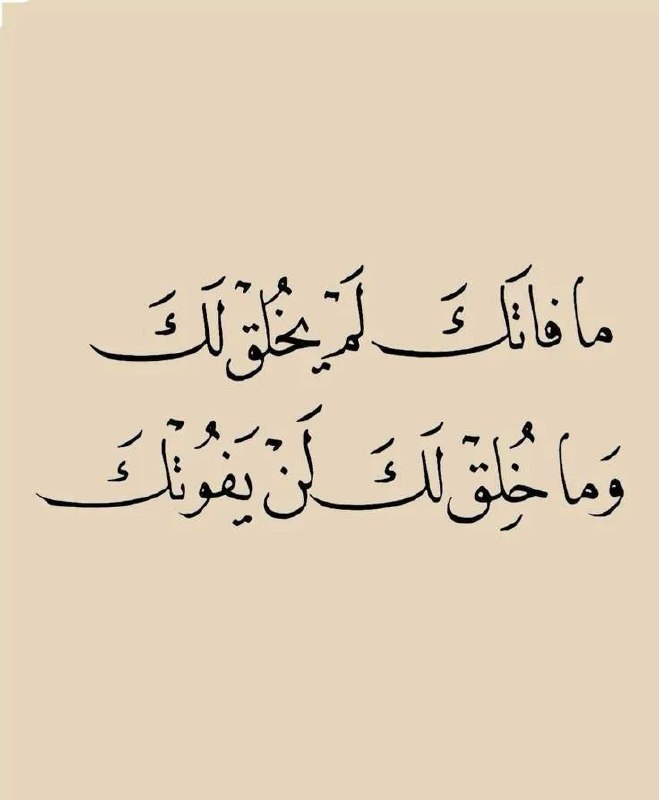 ما فاتَكَ لَمْ يُخْلَقْ لَكَ
وَما خُلِقَ لَكَ لَنْ يَفُوتَكَ